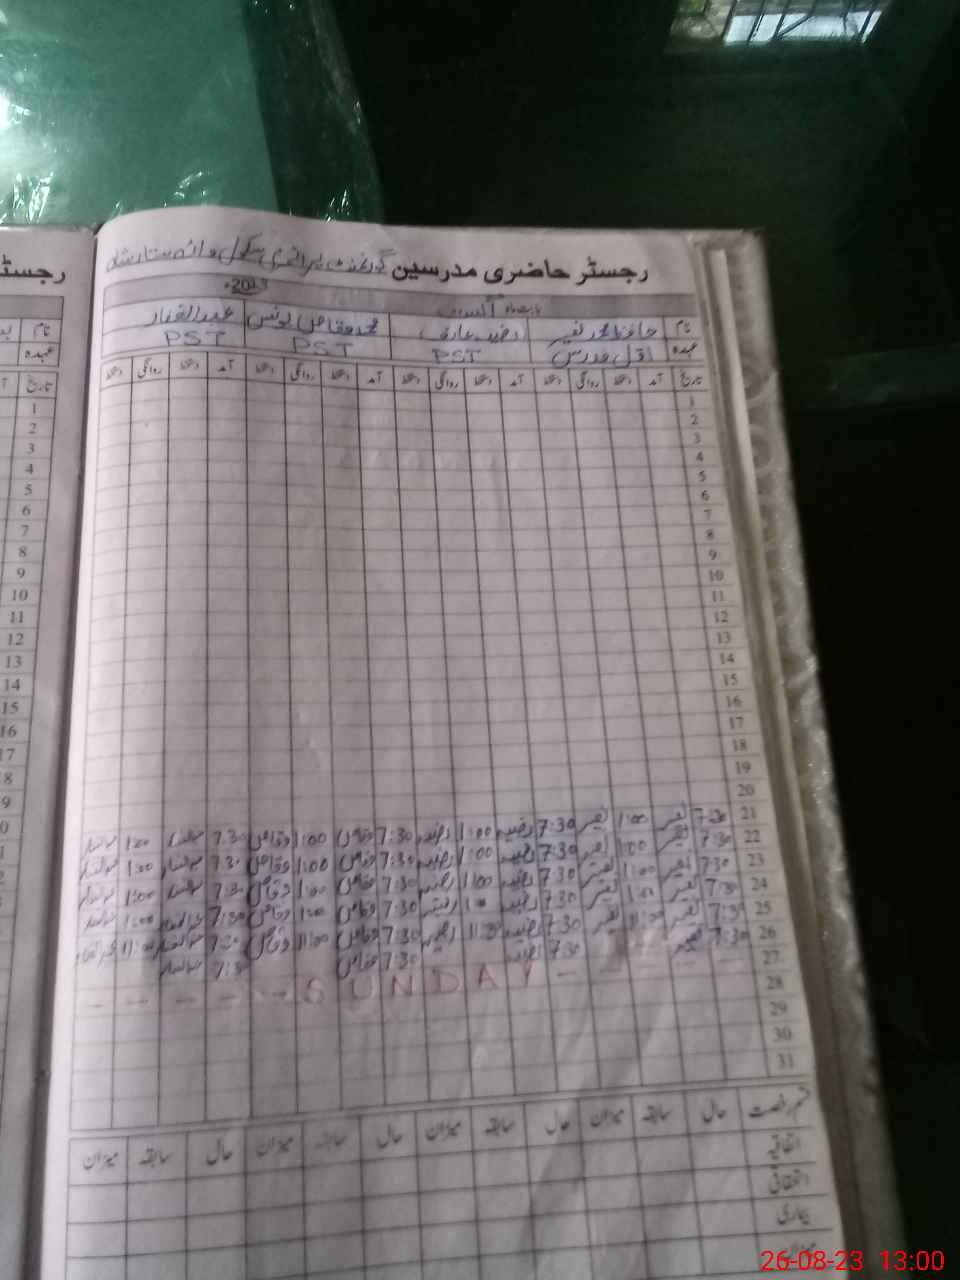 رجسٹر حاضری مدرسین گورنمنٹ پرائمری سکول
2023ء
بابت ماہ اگست
نام حافظ محمد نصیر رضیہ عارف محمد وقاص یونس عبدالغفار
عہدہ اوّل مدرس PST PST PST
تاریخ آمد دستخط روانگی دستخط آمد دستخط روانگی دستخط آمد دستخط روانگی دستخط آمد دستخط روانگی دستخط
1
2
3
4
5
6
7
8
9
10
11
12
13
14
15
16
17
18
19
20
21 7:30 نصیر 1:00 نصیر 7:30 رضیہ 1:00 رضیہ 7:30 وقاص 1:00 وقاص 7:30 1:00
22 7:30 نصیر 1:00 نصیر 7:30 رضیہ 1:00 رضیہ 7:30 وقاص 1:00 وقاص 7:30 1:00
23 7:30 نصیر 1:00 نصیر 7:30 رضیہ 1:00 رضیہ 7:30 وقاص 1:00 وقاص 7:30 1:00
24 7:30 نصیر 1:00 نصیر 7:30 رضیہ 1:00 رضیہ 7:30 وقاص 1:00 وقاص 7:30 1:00
25 7:30 نصیر 11:00 نصیر 7:30 رضیہ 11:00 رضیہ 7:30 وقاص 11:00 وقاص 7:30 11:00
26 7:30 نصیر 7:30 رضیہ 7:30 وقاص 7:30
27 SUNDAY
28
29
30
31
قسم رخصت حال سابقہ میزان حال سابقہ میزان حال سابقہ میزان حال سابقہ میزان
اتفاقیہ
استحقاقی
بیماری
میزان
رجسٹ
نام
عہدہ
تاریخ
1
2
3
4
5
6
7
8
9
10
11
12
13
14
15
16
17
26-08-23 13:00